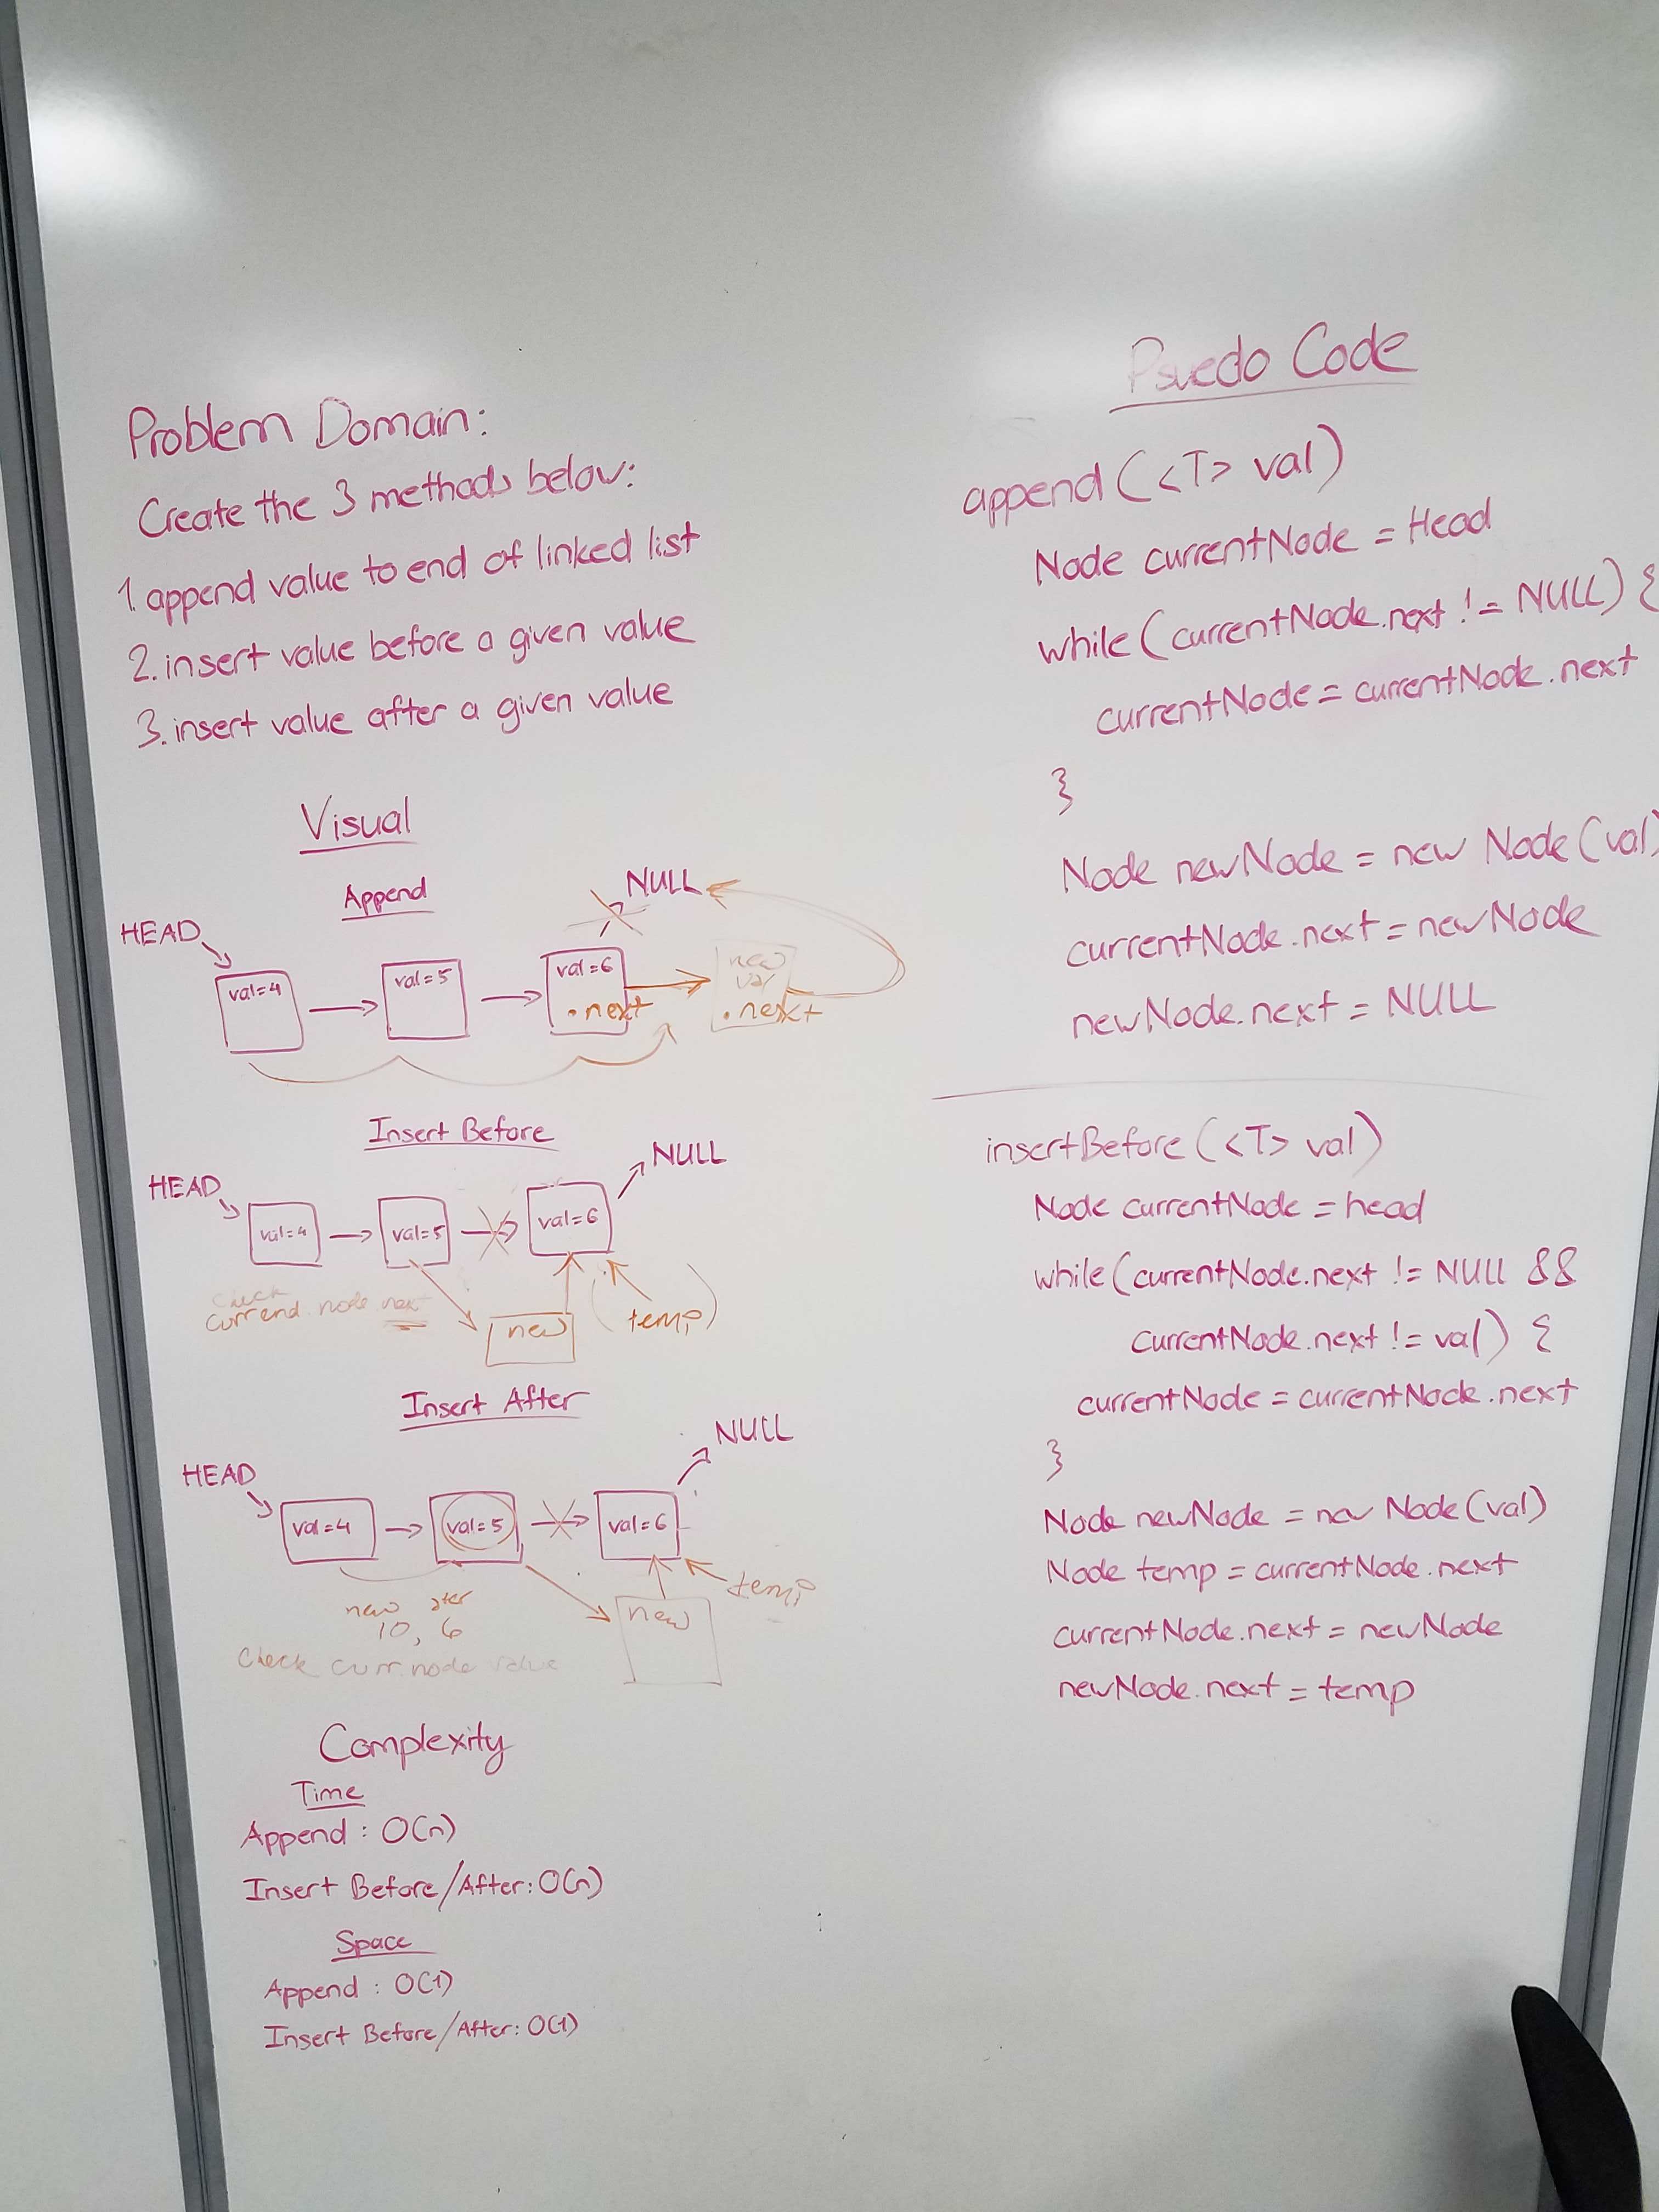 Problem Domain:
Create the 3 methods below:
1. append value to end of linked list
2. insert value before a given value
3. insert value after a given value
Visual
Append
HEAD
NULL
val=4
val=5
val=6
.next
new
val
.next
Insert Before
HEAD
NULL
val=4
val=5
val=6
check
current node next
new
(temp)
Insert After
HEAD
NULL
val=4
val=5
val=6
new
temp
new after
10, 6
Check curr.node value
Complexity
Time
Append : O(n)
Insert Before/After: O(n)
Space
Append : O(1)
Insert Before/After: O(1)
Psuedo Code
append (<T> val)
Node currentNode = Head
while (currentNode.next != NULL) {
currentNode = currentNode.next
}
Node newNode = new Node (val)
currentNode.next = newNode
newNode.next = NULL
insertBefore (<T> val)
Node currentNode = head
while (currentNode.next != NULL &&
currentNode.next != val) {
currentNode = currentNode.next
}
Node newNode = new Node (val)
Node temp = currentNode.next
currentNode.next = newNode
newNode.next = temp